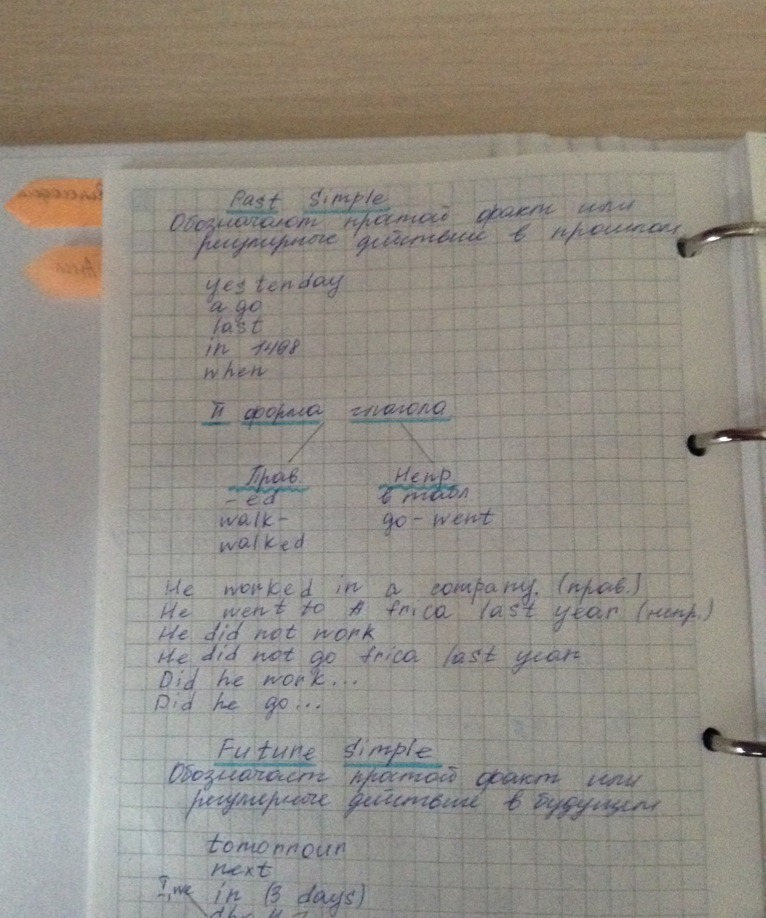 Past Simple
Обозначают простой факт или
регулярные действий в прошлом
yesterday
ago
last
in 1498
when
II форма глагола
Прав Непр
-ed в табл
walk- go - went
walked
He worked in a company. (прав.)
He went to A frica last year (непр.)
He did not work
He did not go frica last year
Did he work...
Did he go...
Future Simple
Обозначает простой факт или
регулярные действие в будущем
tomorrow
next
I, we in (3 days)